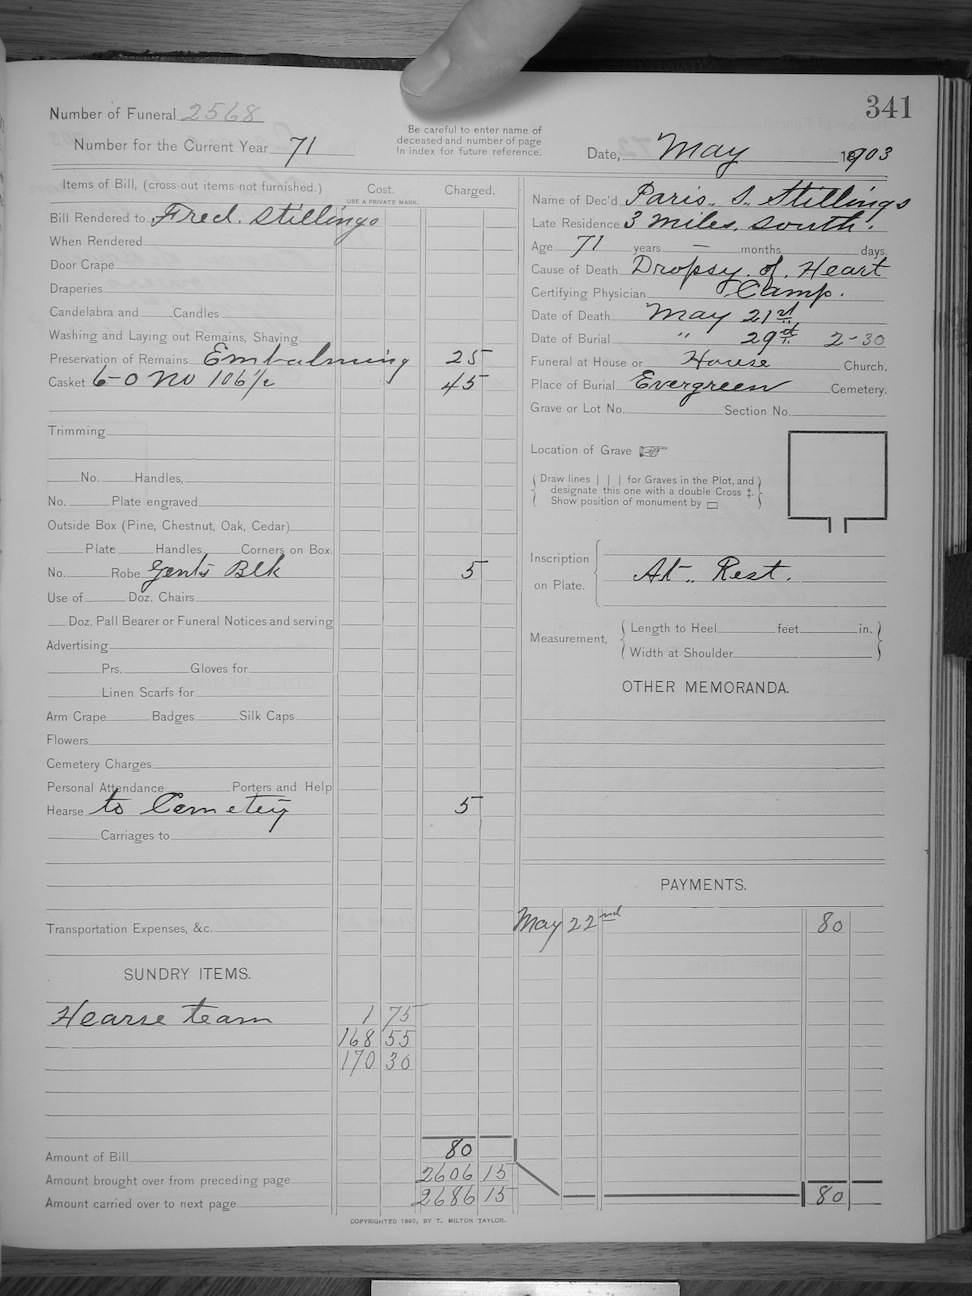 341
Number of Funeral 2568
Number for the Current Year 71
Be careful to enter name of
deceased and number of page
in index for future reference.
Date, May 1903
Items of Bill, (cross out items not furnished.) Cost. Charged.
USE A PRIVATE MARK.
Bill Rendered to Fred. Stillings
When Rendered
Door Crape
Draperies
Candelabra and Candles
Washing and Laying out Remains, Shaving
Preservation of Remains Embalming 25
Casket 6-0 No 106 1/2 45
Trimming
No. Handles,
No. Plate engraved
Outside Box (Pine, Chestnut, Oak, Cedar)
Plate Handles Corners on Box.
No. Robe Gents Blk 5
Use of Doz. Chairs
Doz. Pall Bearer or Funeral Notices and serving
Advertising
Prs. Gloves for
Linen Scarfs for
Arm Crape Badges Silk Caps
Flowers
Cemetery Charges
Personal Attendance Porters and Help
Hearse to Cemetery 5
Carriages to
Transportation Expenses, &c.
SUNDRY ITEMS.
Hearse team 1 75
168 55
170 30
Amount of Bill 80
Amount brought over from preceding page 2606 15
Amount carried over to next page 2686 15
Name of Dec'd Paris. S. Stillings
Late Residence 3 miles. south.
Age 71 years — months days.
Cause of Death Dropsy. of. Heart
Certifying Physician Camp.
Date of Death May 21st
Date of Burial " 29th 2-30
Funeral at House or House Church.
Place of Burial Evergreen Cemetery.
Grave or Lot No. Section No.
Location of Grave ☞
Draw lines | | | for Graves in the Plot, and
designate this one with a double Cross ‡.
Show position of monument by ▭
Inscription
on Plate. At.. Rest.
Measurement, Length to Heel feet in.
Width at Shoulder
OTHER MEMORANDA.
PAYMENTS.
May 22nd 80
80
COPYRIGHTED 1890, BY T. MILTON TAYLOR.